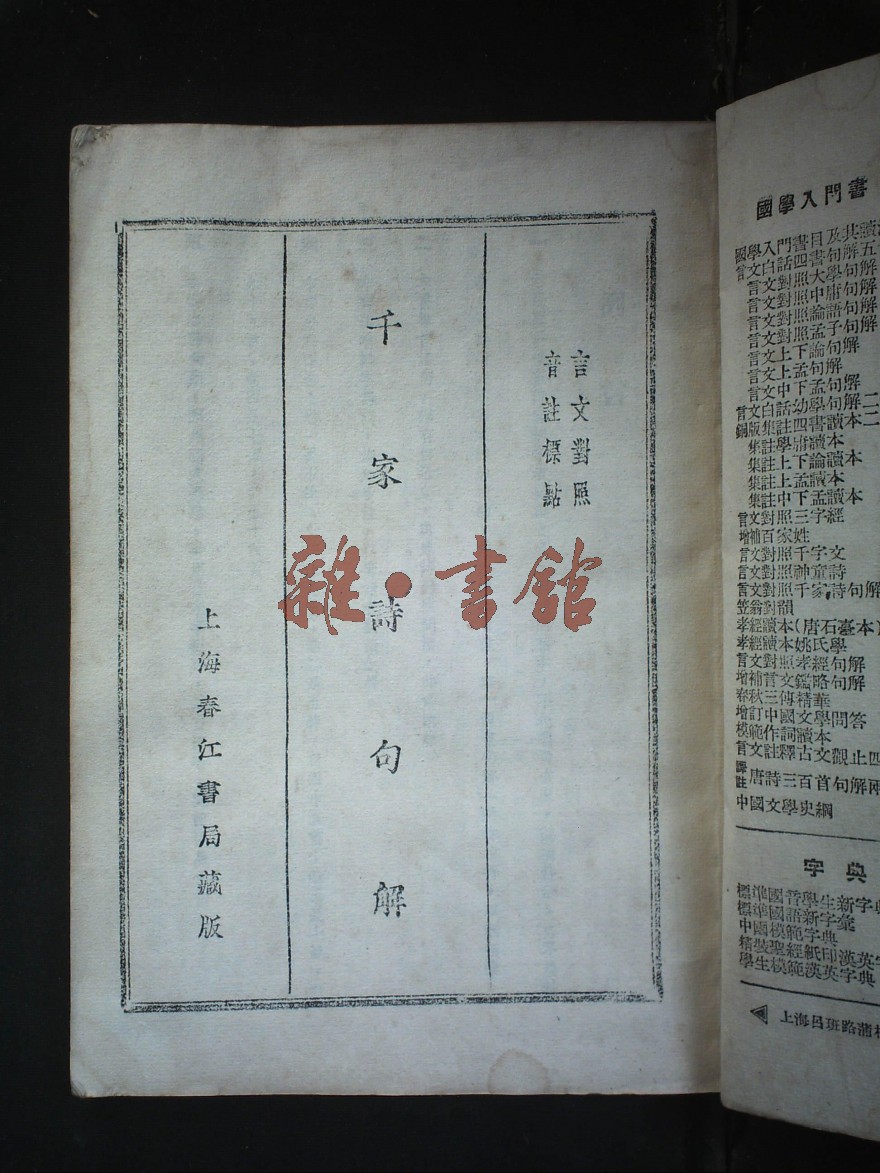 言文對照
音註標點
千家詩句解
上海春江書局藏版
雜·書館
國學入門書
國學入門書目及其讀
言文白話四書句解五
言文對照大學句解
言文對照中庸句解
言文對照論語句解
言文對照孟子句解
言文上下論句解
言文上孟句解
言文中下孟句解
言文白話幼學句解二
銅版集註四書讀本二
集註學庸讀本
集註上下論讀本
集註上孟讀本
集註中下孟讀本
言文對照三字經
增補百家姓
言文對照千字文
言文對照神童詩
言文對照千家詩句解
笠翁對韻
孝經讀本(唐石臺本)
孝經讀本姚氏學
言文對照孝經句解
增補言文鑑略句解
春秋三傳精華
增訂中國文學問答
模範作詞讀本
言文註釋古文觀止四
譯註唐詩三百首句解兩
中國文學史綱
字典
標準國音學生新字典
標準國語新字彙
中國模範字典
精裝聖經紙印漢英字
學生模範漢英字典
上海呂班路蒲